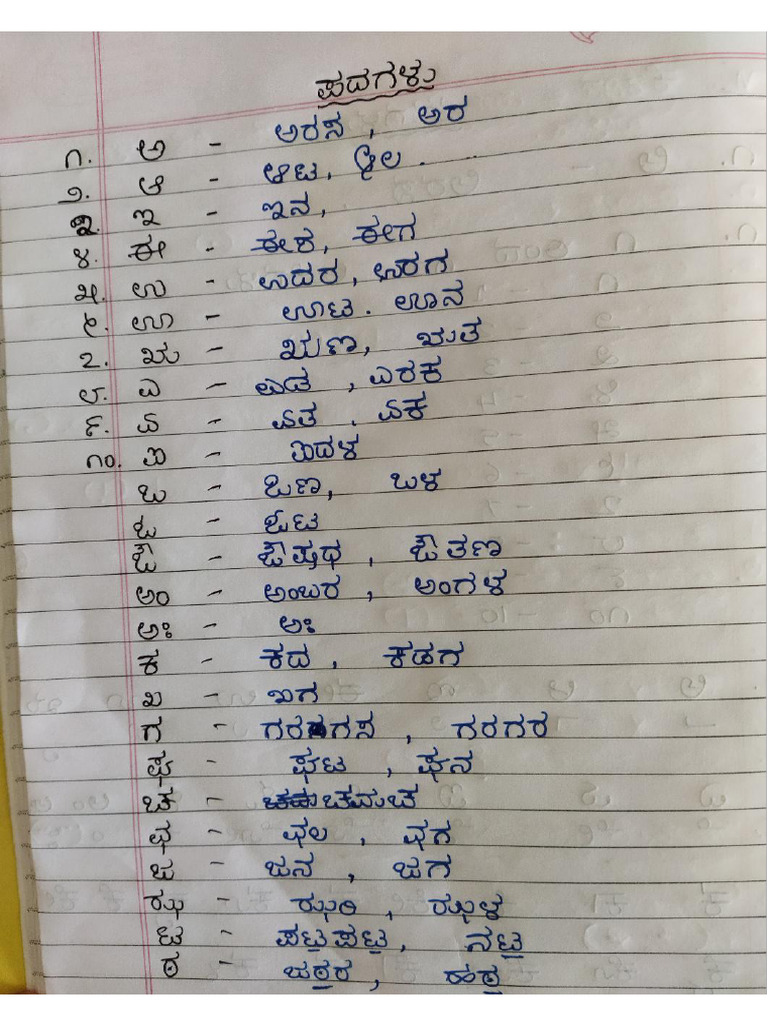 ಪದಗಳು
೧. ಅ - ಅರಸ, ಅರ
೨. ಆ - ಆಟ, ಆಲ.
೩. ಇ - ಇನ,
೪. ಈ - ಈಶ, ಈಗ
೫. ಉ - ಉದರ, ಉರಗ
೬. ಊ - ಊಟ. ಊನ
೭. ಋ - ಋಣ, ಋತ
೮. ಎ - ಎಡ, ಎರಕ
೯. ಏ - ಏತ. ಏಕ
೧೦. ಐ - ಐದಳ
ಒ - ಒಣ, ಒಳ
ಓ - ಓಟ
ಔ - ಔಷಧ, ಔತಣ
ಅಂ - ಅಂಬರ, ಅಂಗಳ
ಅಃ - ಅಃ
ಕ - ಕದ, ಕಡಗ
ಖ - ಖಗ
ಗ - ಗರಗಸ, ಗರಗರ
ಘ - ಘಟ, ಘನ
ಚ - ಚಮಚ
ಛ - ಛಲ, ಛಗ
ಜ - ಜನ, ಜಗ
ಝ - ಝರಿ, ಝಳ
ಟ - ಪಟಪಟ, ನಟ
ಠ - ಜಠರ, ಹಠ